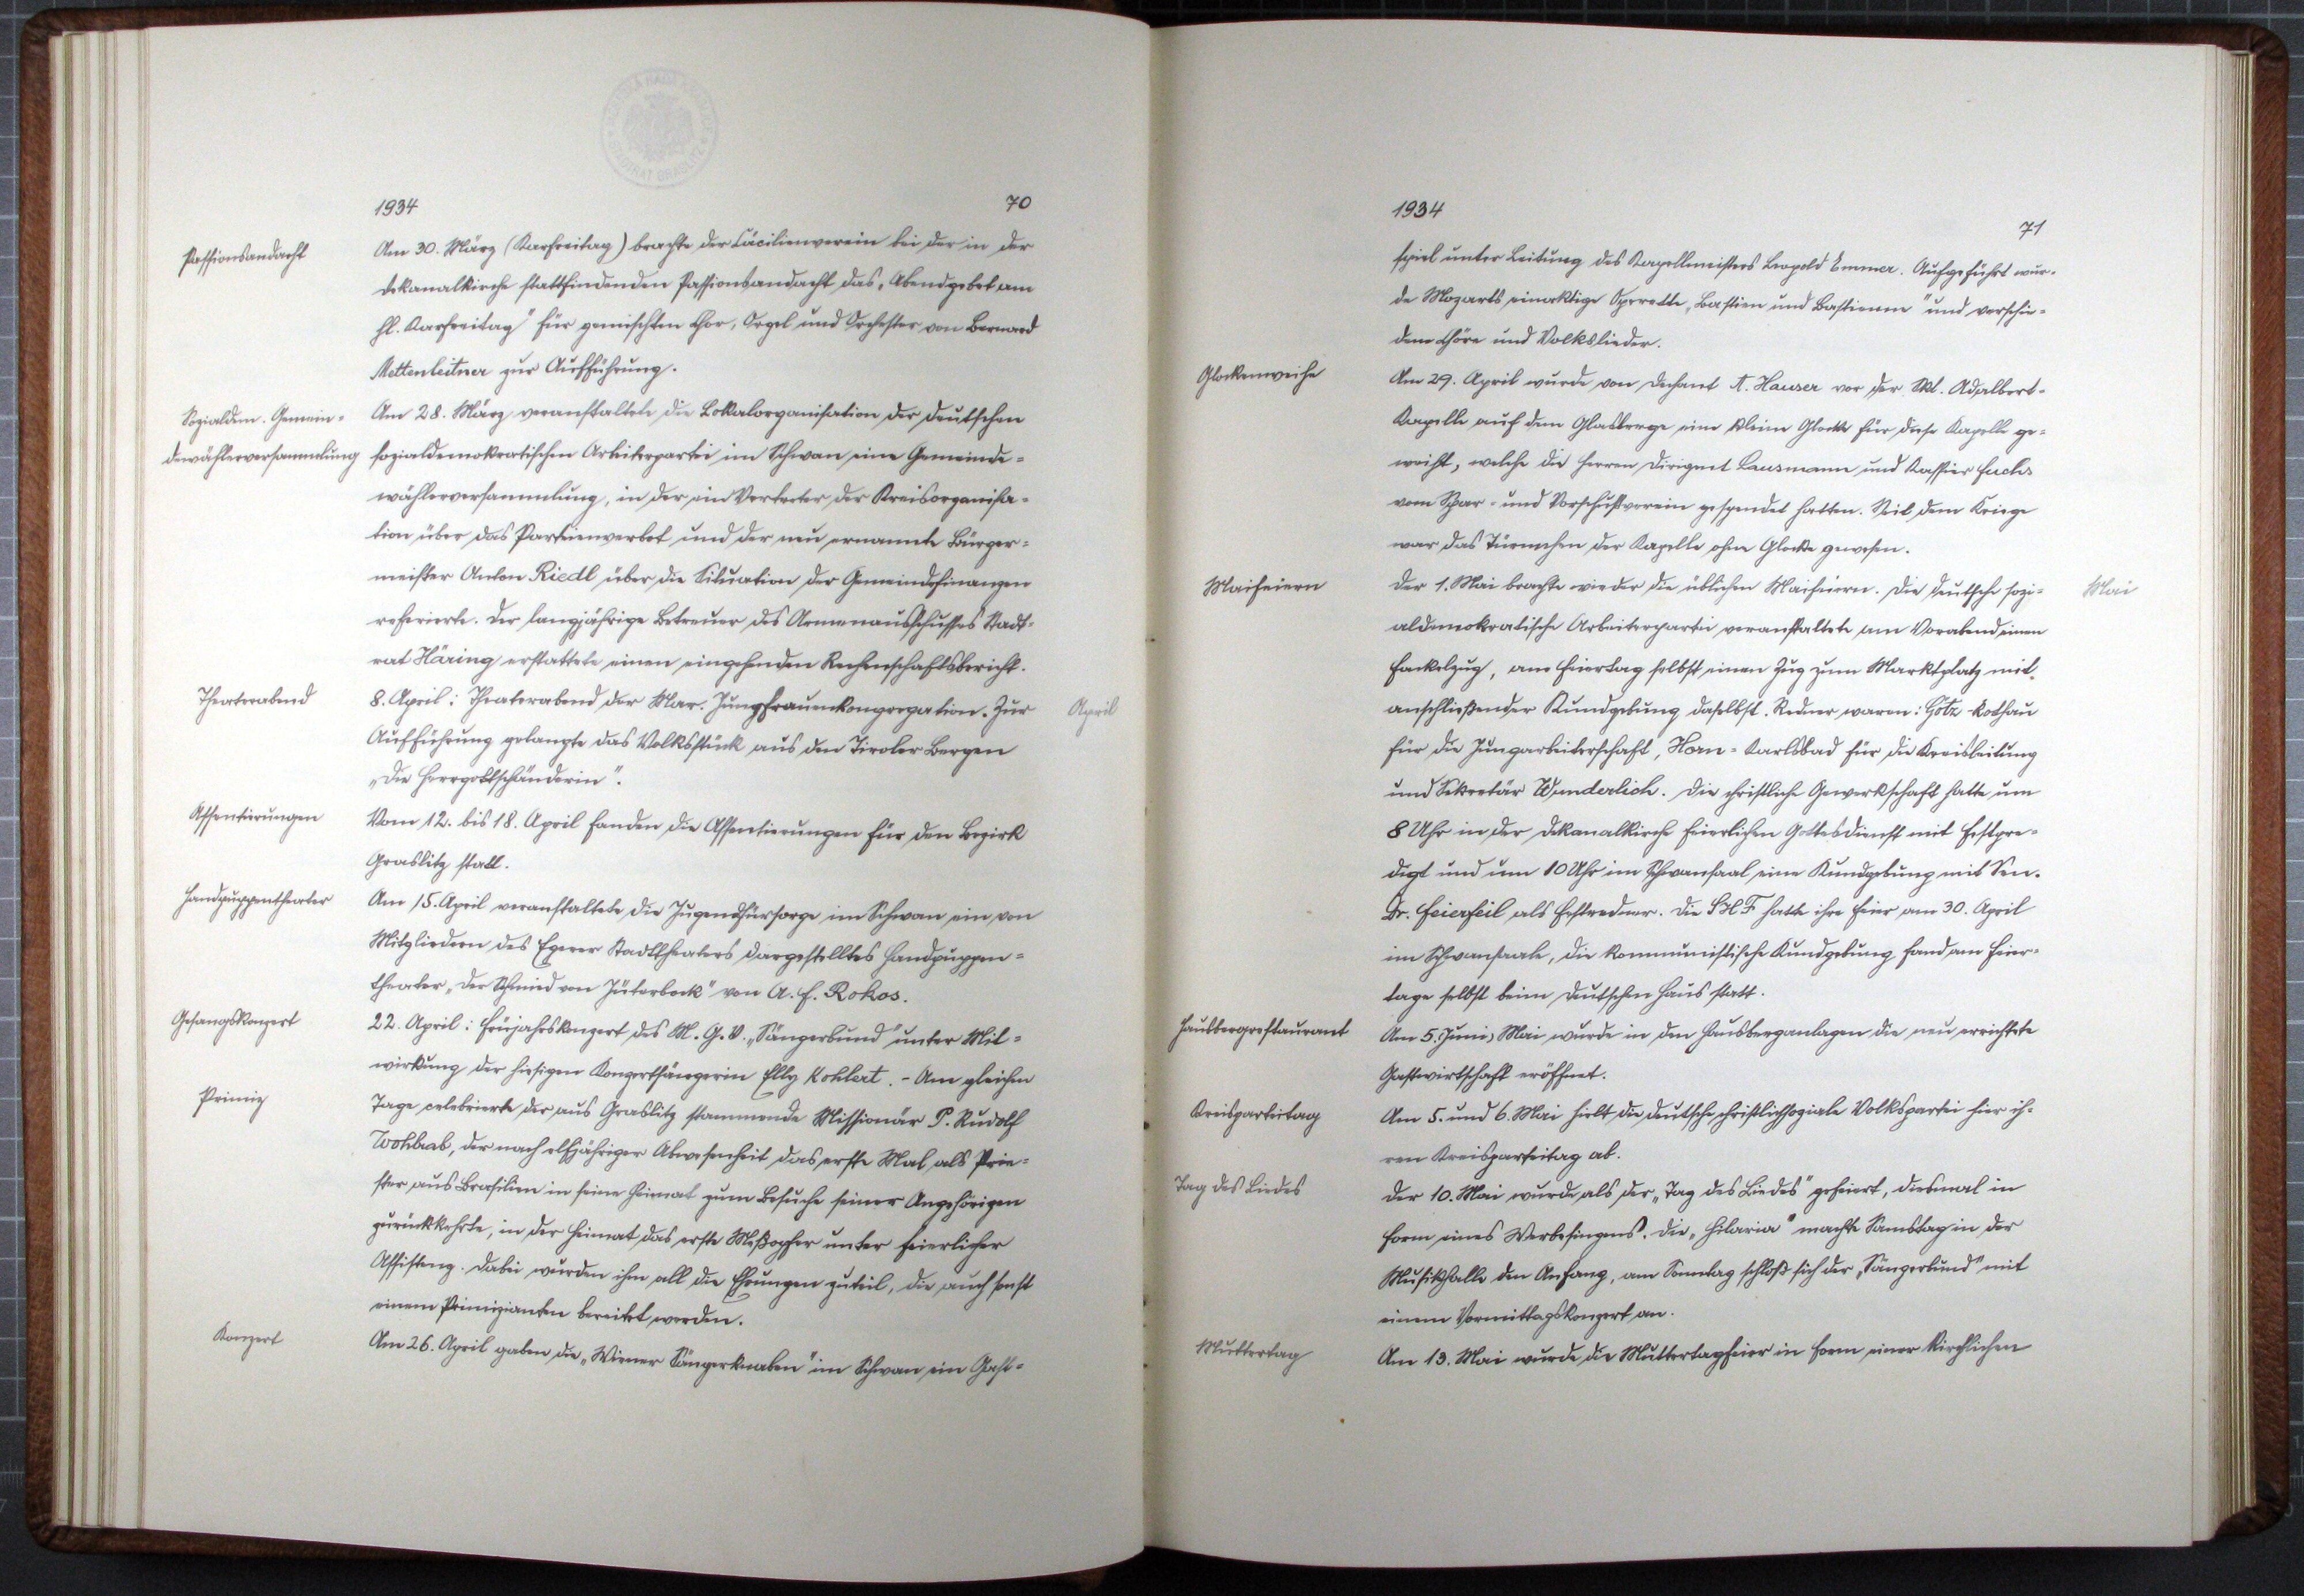 1934
70
Passionsandacht
Am 30. März (Karfreitag) brachte der Cäcilienverein bei der in der
Dekanalkirche stattfindenden Passionsandacht das „Abendgebet am
hl. Karfreitag" für gemischten Chor, Orgel und Orchester von Bernard
Mettenleitner zur Aufführung.
Sozialdem. Gemein=
dewählerversammlung
Am 28. März veranstaltete die Lokalorganisation der deutschen
sozialdemokratischen Arbeiterpartei im Schwan eine Gemeinde=
wählerversammlung, in der ein Vertreter der Kreisorganisa=
tion über das Parteienverbot und der neu ernannte Bürger=
meister Anton Riedl über die Situation der Gemeindefinanzen
referierte. Der langjährige Betreuer des Armenausschusses Stadt=
rat Häring erstattete einen eingehenden Rechenschaftsbericht.
Theaterabend
8. April: Theaterabend der Mar. Jungfrauenkongregation. Zur
April
Aufführung gelangte das Volksstück aus den Tiroler Bergen
„Die Herrgottschänderin".
Assentierungen
Vom 12. bis 18. April fanden die Assentierungen für den Bezirk
Graslitz statt.
Handpuppentheater
Am 15. April veranstaltete die Jugendfürsorge im Schwan ein von
Mitgliedern des Egerer Stadttheaters dargestelltes Handpuppen=
theater „Der Schmied von Jüterbock" von A. F. Rokos.
Gesangskonzert
22. April: Frühjahrskonzert des M. G. V. „Sängerbund" unter Mit=
wirkung der hiesigen Konzertsängerin Elly Kohlert. - Am gleichen
Primiz
Tage celebrierte der aus Graslitz stammende Missionär P. Rudolf
Wohlrab, der nach elfjähriger Abwesenheit das erste Mal als Prie=
ster aus Brasilien in seine Heimat zum Besuche seiner Angehörigen
zurückkehrte, in der Heimat das erste Meßopfer unter feierlicher
Assistenz. Dabei wurden ihm all die Ehrungen zuteil, die auch sonst
einem Primizianten bereitet werden.
Konzert
Am 26. April gaben die „Wiener Sängerknaben" im Schwan ein Gast=
1934
71
spiel unter Leitung des Kapellmeisters Leopold Emmer. Aufgeführt wur=
de Mozarts einaktige Operette „Bastien und Bastienne" und verschie=
dene Chöre und Volkslieder.
Glockenweihe
Am 29. April wurde von Dechant A. Hauser vor der Skt. Adalbert=
Kapelle auf dem Glasberge eine kleine Glocke für diese Kapelle ge=
weiht, welche die Herren Dirigent Lausmann und Kassier Fuchs
vom Spar= und Vorschußverein gespendet hatten. Seit dem Kriege
war das Türmchen der Kapelle ohne Glocke gewesen.
Maifeiern
Der 1. Mai brachte wieder die üblichen Maifeiern. Die deutsche sozi=
Mai
aldemokratische Arbeiterpartei veranstaltete am Vorabend einen
Fackelzug, am Feiertag selbst einen Zug zum Marktplatz mit
anschließender Kundgebung daselbst. Redner waren: Götz-Rothau
für die Jungarbeiterschaft, Horn=Karlsbad für die Kreisleitung
und Sekretär Wunderlich. Die christliche Gewerkschaft hatte um
8 Uhr in der Dekanalkirche feierlichen Gottesdienst mit Festpre=
digt und um 10 Uhr im Schwansaal eine Kundgebung mit Sen.
Dr. Feierfeil als Festredner. Die SHF hatte ihre Feier am 30. April
im Schwansaale, die kommunistische Kundgebung fand am Feier=
tage selbst beim Deutschen Haus statt.
Hausbergrestaurant
Am 5. Juni, Mai wurde in den Hausberganlagen die neu errichtete
Gastwirtschaft eröffnet.
Kreisparteitag
Am 5. und 6. Mai hielt die deutsche christlichsoziale Volkspartei hier ih=
ren Kreisparteitag ab.
Tag des Liedes
Der 10. Mai wurde als der „Tag des Liedes" gefeiert, diesmal in
Form eines Werbesingens. Die „Hilaria" machte Samstag in der
Musikhalle den Anfang, am Sonntag schloß sich der „Sängerbund" mit
einem Vormittagskonzert an.
Muttertag
Am 13. Mai wurde die Muttertagfeier in Form einer kirchlichen